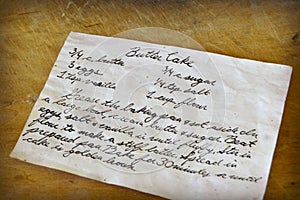 Butter Cake
3/4 c butter 3/4 c sugar
3 eggs 1/4 tsp salt
1 tsp vanilla 1 cup flour
Grease the baking pan and set aside. In
a large bowl, cream butter & sugar. Beat
eggs, salt & vanilla until fluffy. Stir in
flour to make a stiff batter. Spread in
prepared pan. Bake for 30 minutes or until
cake is golden brown